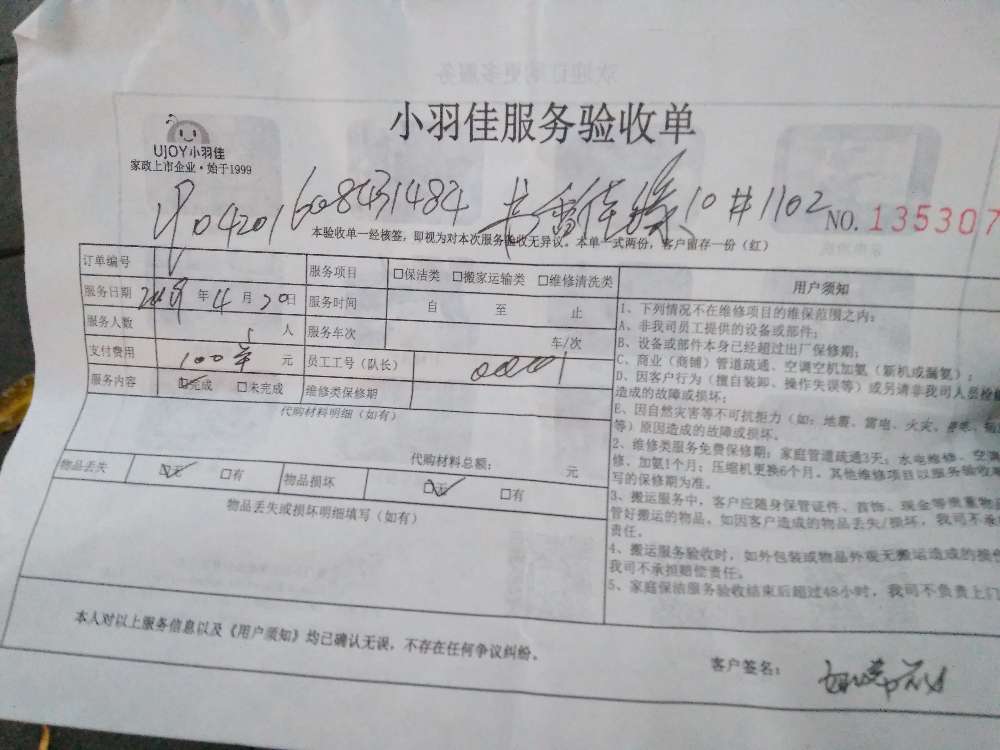 小羽佳服务验收单
UJOY小羽佳
家政上市企业·始于1999
10#1102
NO. 135307
本验收单一经核签，即视为对本次服务验收无异议。本单一式两份，客户留存一份（红）
订单编号 服务项目 □保洁类 □搬家运输类 □维修清洗类 用户须知
服务日期 年 4 月 20 日 服务时间 自 至 止
服务人数 人 服务车次 车/次
支付费用 100 元 员工工号（队长） 0001
服务内容 ☑完成 □未完成 维修类保修期
代购材料明细（如有）
代购材料总额： 元
物品丢失 ☑无 □有 物品损坏 ☑无 □有
物品丢失或损坏明细填写（如有）
1、下列情况不在维修项目的维保范围之内：
A、非我司员工提供的设备或部件；
B、设备或部件本身已经超过出厂保修期；
C、商业（商铺）管道疏通、空调空机加氨（新机或漏氨）；
D、因客户行为（擅自装卸、操作失误等）或另请非我司人员检
造成的故障或损坏；
E、因自然灾害等不可抗拒力（如：地震、雷电、火灾、
等）原因造成的故障或损坏。
2、维修类服务免费保修期：家庭管道疏通3天；水电维修、空调
修、加氨1个月；压缩机更换6个月。其他维修项目以服务验收
写的保修期为准。
3、搬运服务中，客户应随身保管证件、首饰、现金等贵重物品
管好搬运的物品。如因客户造成的物品丢失/损坏，我司不承
责任。
4、搬运服务验收时，如外包装或物品外观无搬运造成的损
我司不承担赔偿责任。
5、家庭保洁服务验收结束后超过48小时，我司不负责上门
本人对以上服务信息以及《用户须知》均已确认无误，不存在任何争议纠纷。
客户签名：